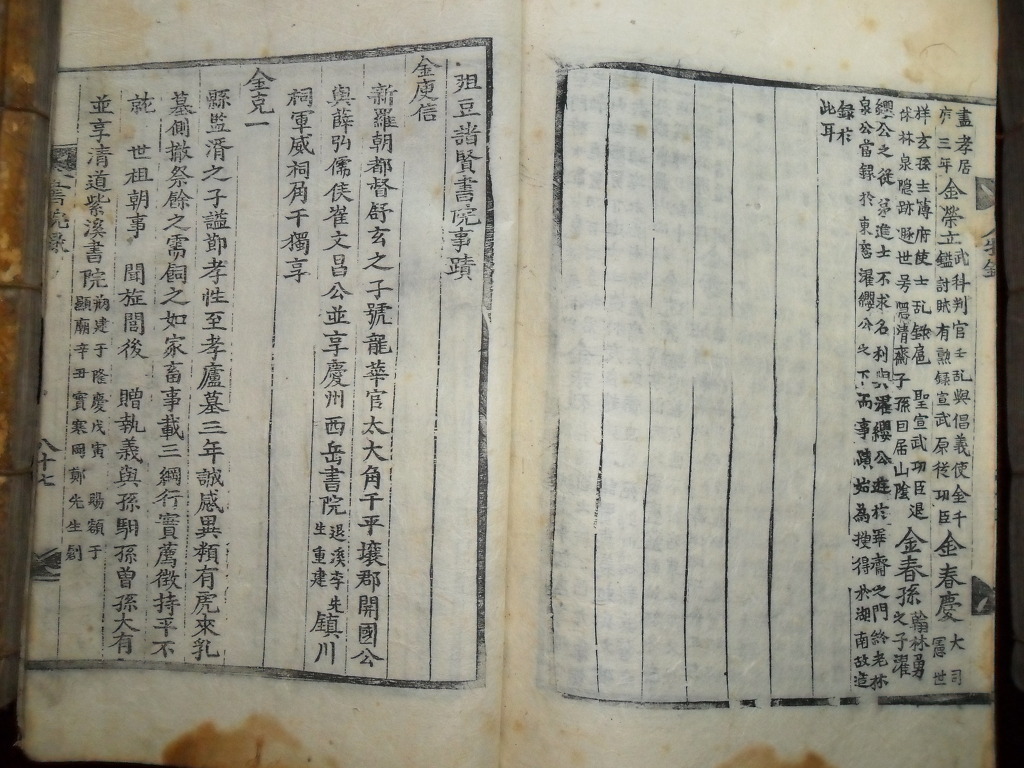 畫孝居
府三年
金榮立
武科判官壬乱與倡義使金千
鎰討賊有勲録宣武原從功臣
金春慶
大司
憲世
祥玄孫主簿府使壬乱録扈 聖宣武功臣退
休林泉隠跡遯世号隠清齋子孫曰居山陰
金春孫
翰林勇
之子濯
纓公之從弟進士不求名利與濯纓公遊於畢齋之門終老林
泉公當録於東窓濯纓公之下而事蹟始為搜得於湖南故追
録於
此耳
俎豆諸賢書院事蹟
金庾信
新羅朝都督舒玄之子號龍華官太大角干平壤郡開國公
與薛弘儒侯崔文昌公並享慶州西岳書院
退溪李先
生重建
鎮川
祠軍威祠角干獨享
金克一
縣監湑之子謚節孝性至孝廬墓三年誠感異類有虎來乳
墓側撤祭餘之需飼之如家畜事載三綱行實薦徵持平不
就 世祖朝事 聞旌閭後 贈執義與孫馹孫曽孫大有
並享清道紫溪書院
朔建于隆慶戊寅 賜額于
顯廟辛丑實寒岡鄭先生創
書院錄
八十七